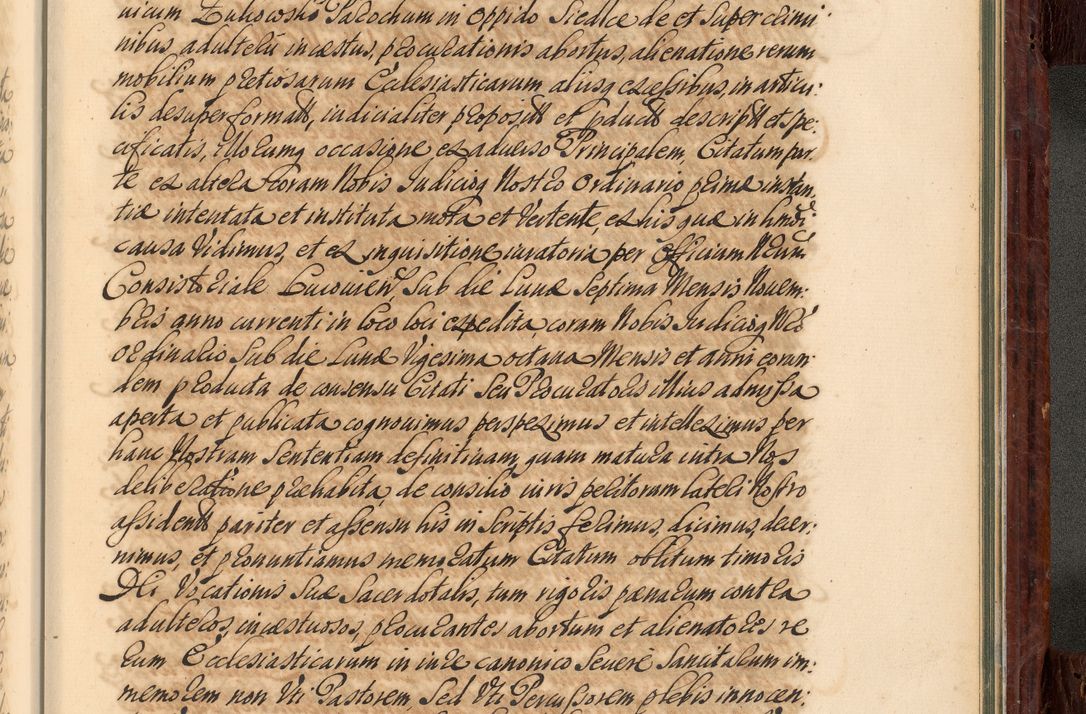 nicum Żukowski Parochum in oppido Siedlce de et super crimi-
nibus adulterii incæstus, procurationis abortus, alienatione rerum
mobilium pretiosarum Ecclesiasticarum aliisq excessibus, in articu-
lis desuper formatt, iudicialiter propositt et productt descriptt et spe-
cificatis, illorumq occasione ex adverso Principalem, Citatum par-
te ex altera coram Nobis Iudicioq Nostro ordinario primæ instan
tiæ intentata et instituta mota et vertente, ex his quæ in hmdi
causa vidimus, et ex inquisitione iuratoria per officium Nrum
Consistoriale Lucovien Sub die Lunæ Septima Mensis Novem-
bris anno currenti in loco loci expedita, coram Nobis Iudicioq Nro
ordinario Sub die Lunæ Vigesima octava Mensis et anni eorun-
dem producta de consensu Citati Seu Procuratoris illius admissa
aperta et publicata cognovimus perspeximus et intelleximus per
hanc Nostram Sententiam definitivam, quam matura intra Nos
deliberatione præhabita de consilio iuris peritorum lateri Nostro
assidentt pariter et assensu his in Scriptis ferimus, dicimus, decer-
nimus, et pronuntiamus memoratum Citatum oblitum timoris
Dei Vocationis Suæ Sacerdotalis, tum rigoris pænarum contra
adulteros, incæstuosos, procurantes abortum et alienatores re
rum Ecclesiasticarum in iure canonico Severe Sancitarum im-
memorem non Uti Pastorem, Sed Uti Percussorem plebis innocen-